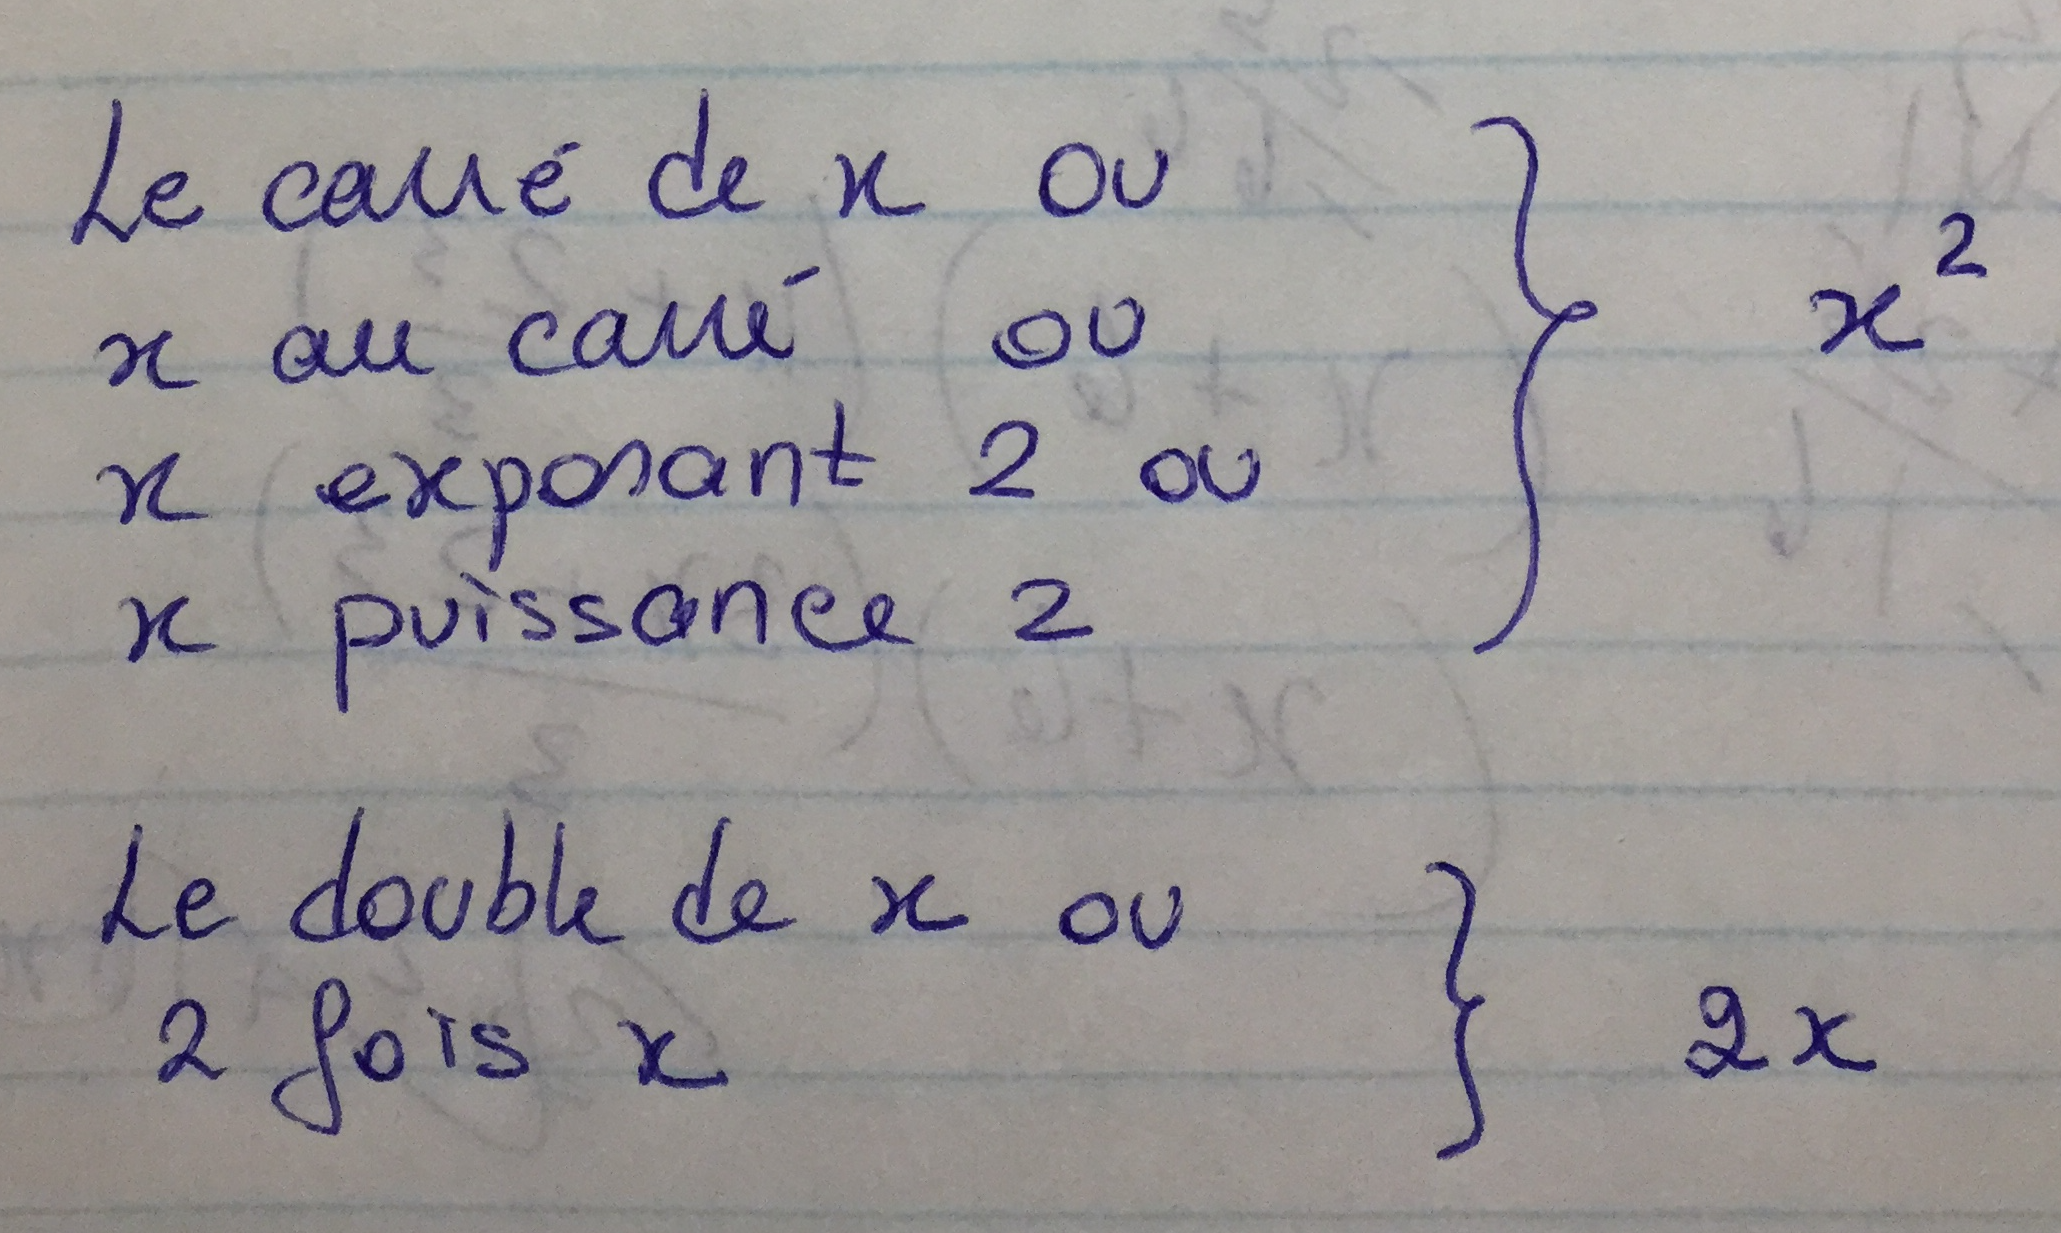 Le carré de x ou
x au carré ou
x exposant 2 ou
x puissance 2
} x²
Le double de x ou
2 fois x
} 2x